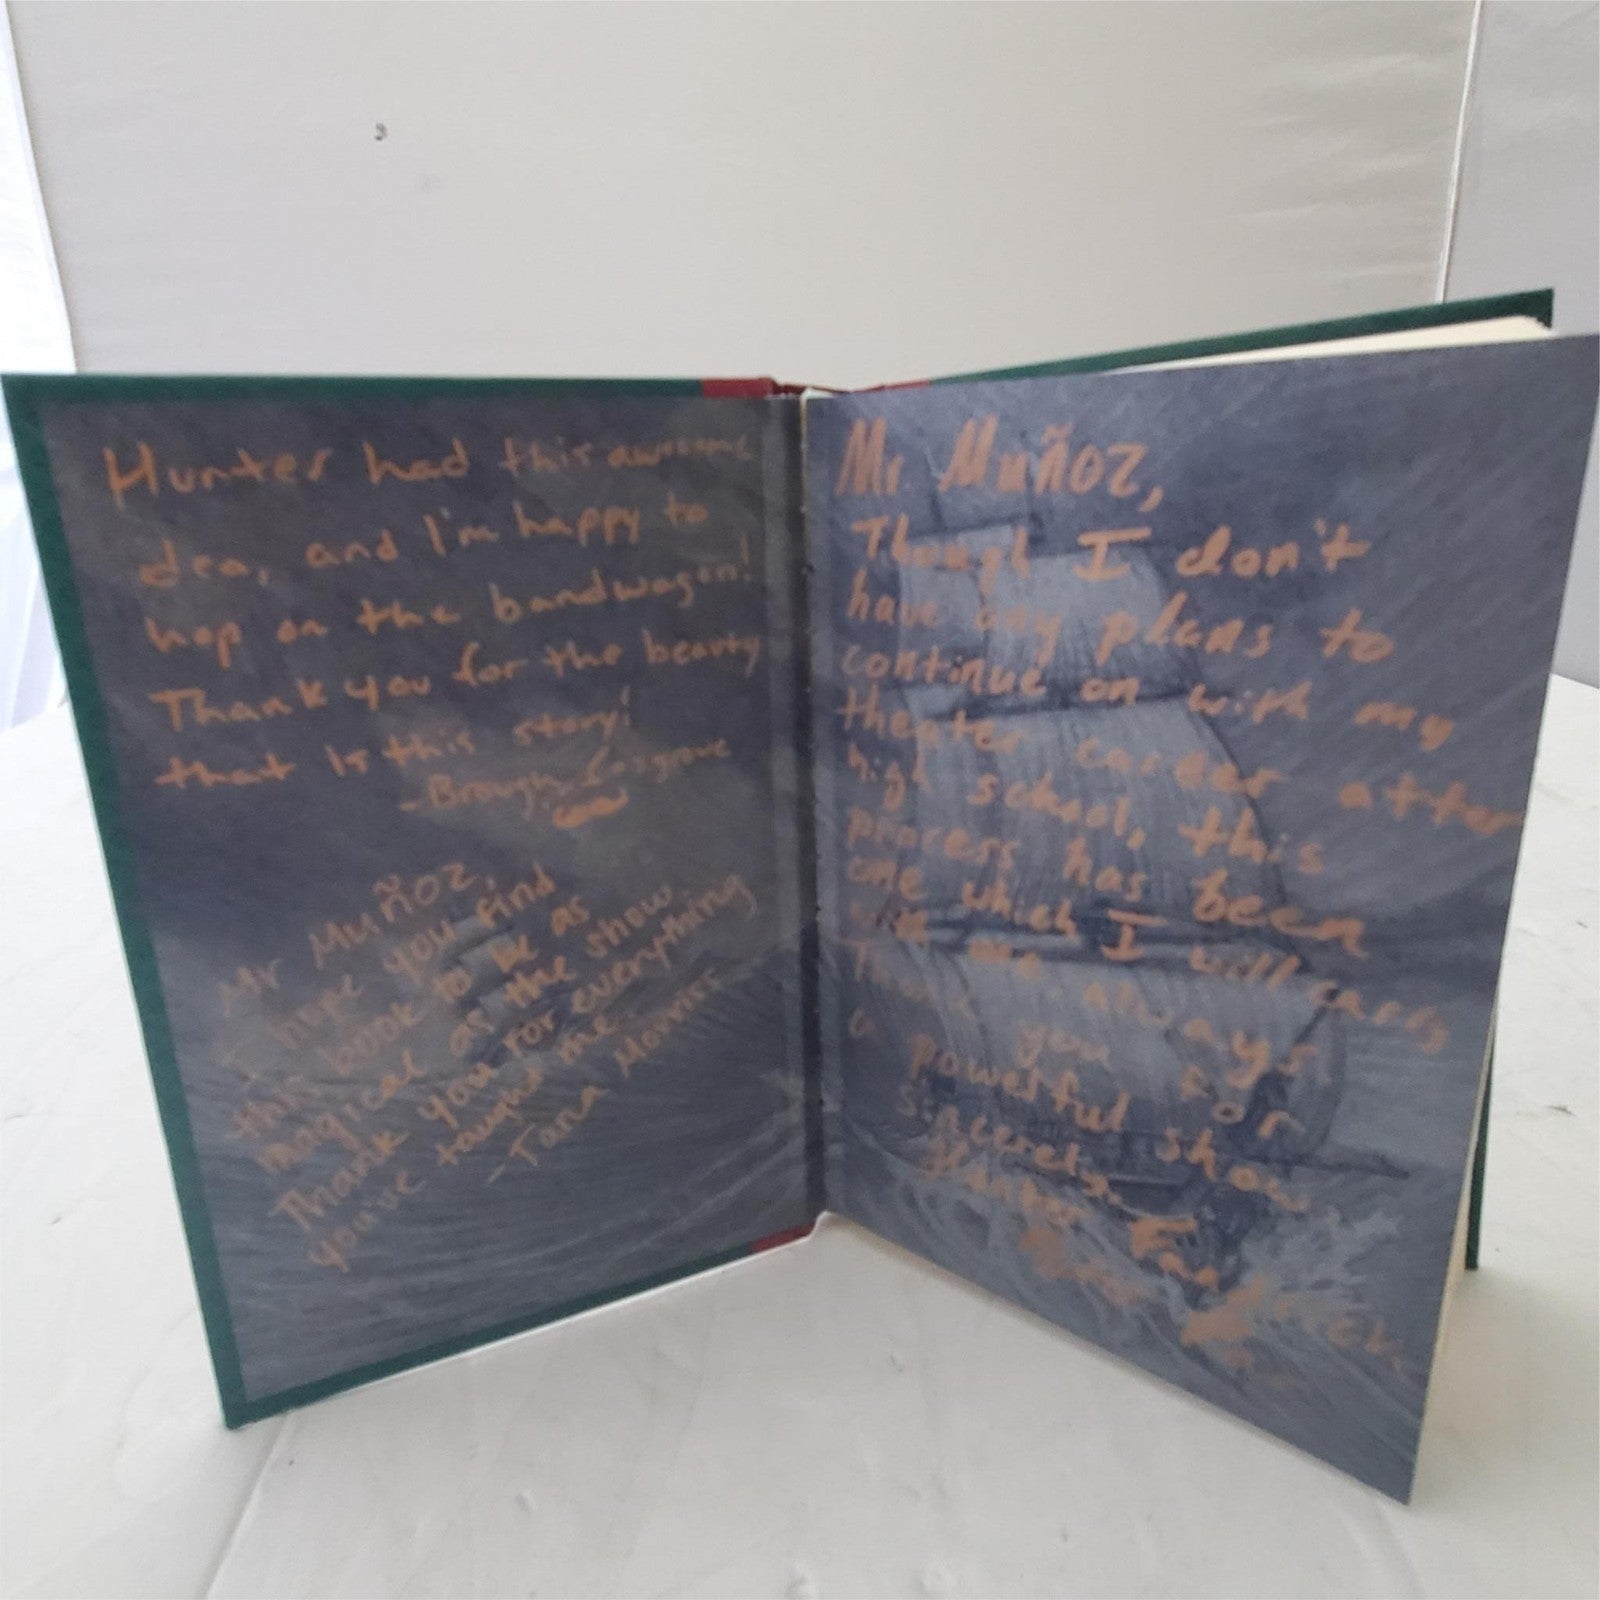 Hunter had this awesome
idea, and I'm happy to
hop on the bandwagon!
Thank you for the beauty
that is this story!
Mr Muñoz,
I hope you find
this book to be as
magical as the show.
Thank you for everything
you've taught me.
-Tana Morriss
Mr Muñoz,
Though I don't
have any plans to
continue on with my
theater career after
high school, this
process has been
one which I will carry
with me always.
Thank you for
a powerful show
sincerely,
Hunter